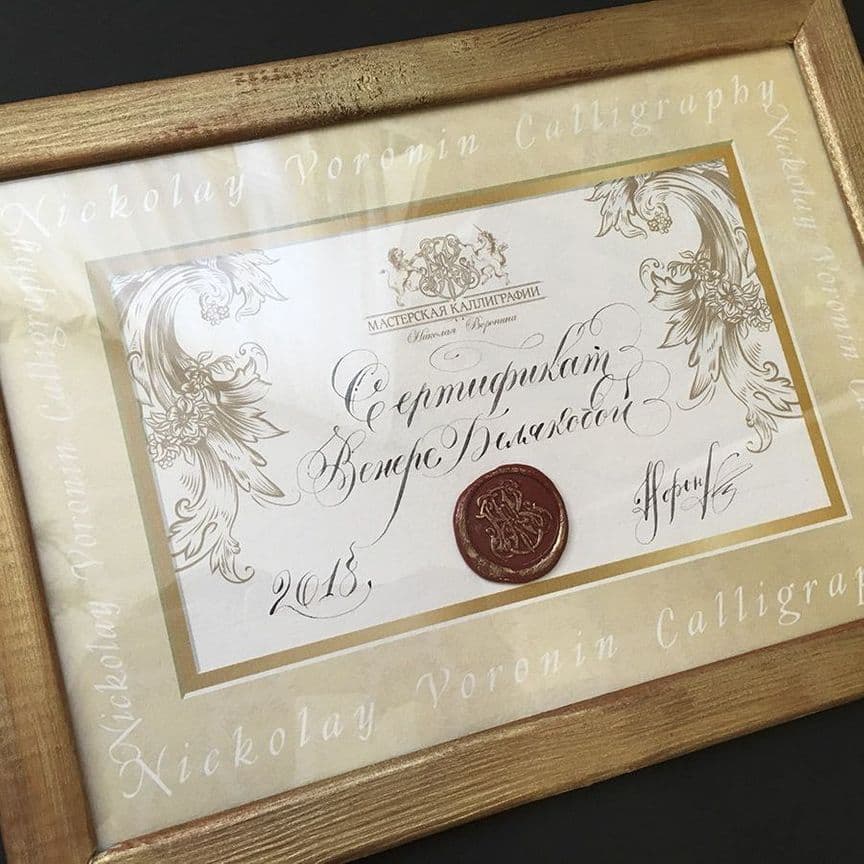 Nickolay Voronin Calligraphy
Nickolay Voronin
Nickolay Voronin Calligraphy
МАСТЕРСКАЯ КАЛЛИГРАФИИ
Николая Воронина
Сертификат
Венере Беляковой
2018
Nickolay Voronin Calligrap